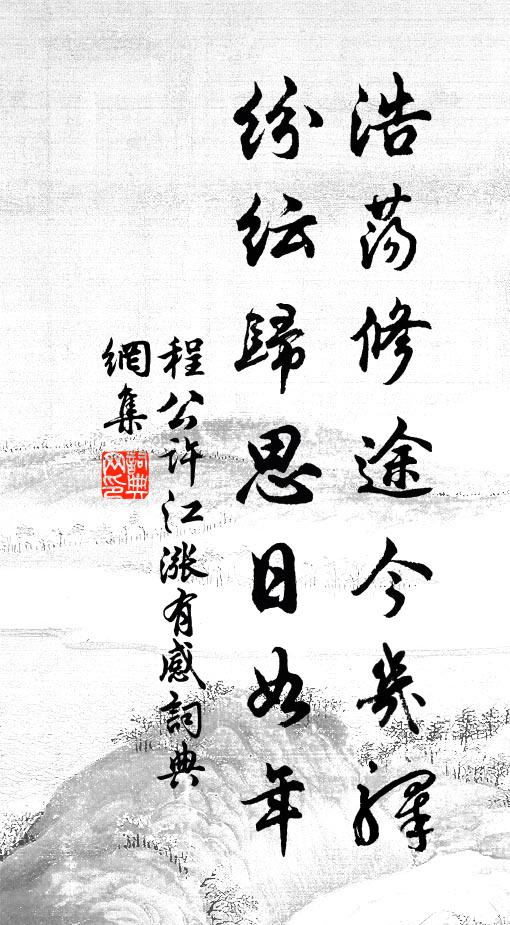 浩荡修途今几驿
纷纭歸思日如年
程公许江涨有感詞典
網集
詞典
网印